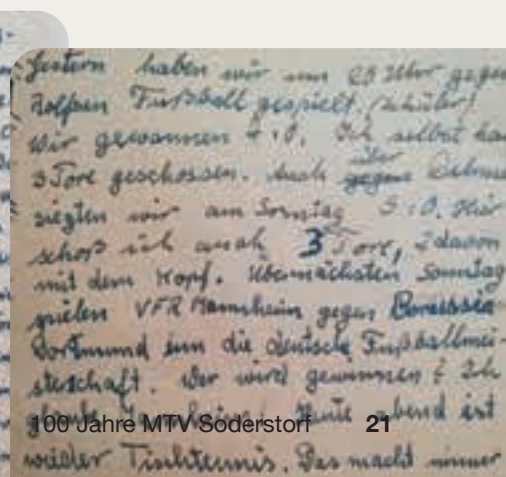 Gestern haben wir um Uhr gegen
Fußball gespielt. (Schüler)
Wir gewannen 4:0. Ich selbst ha
3 Tore geschossen. Auch über gegen
siegten wir am Sonntag 5:0. Hier
schoß ich auch 3 Tore, 2 davon
mit dem Kopf. Übernächsten Sonntag
spielen VFR Mannheim gegen Borussia
Dortmund um die deutsche Fußballmei-
sterschaft. Wer wird gewinnen? Ich
Heute abend ist
100 Jahre MTV Soderstorf 21
wieder Tischtennis. Das macht immer